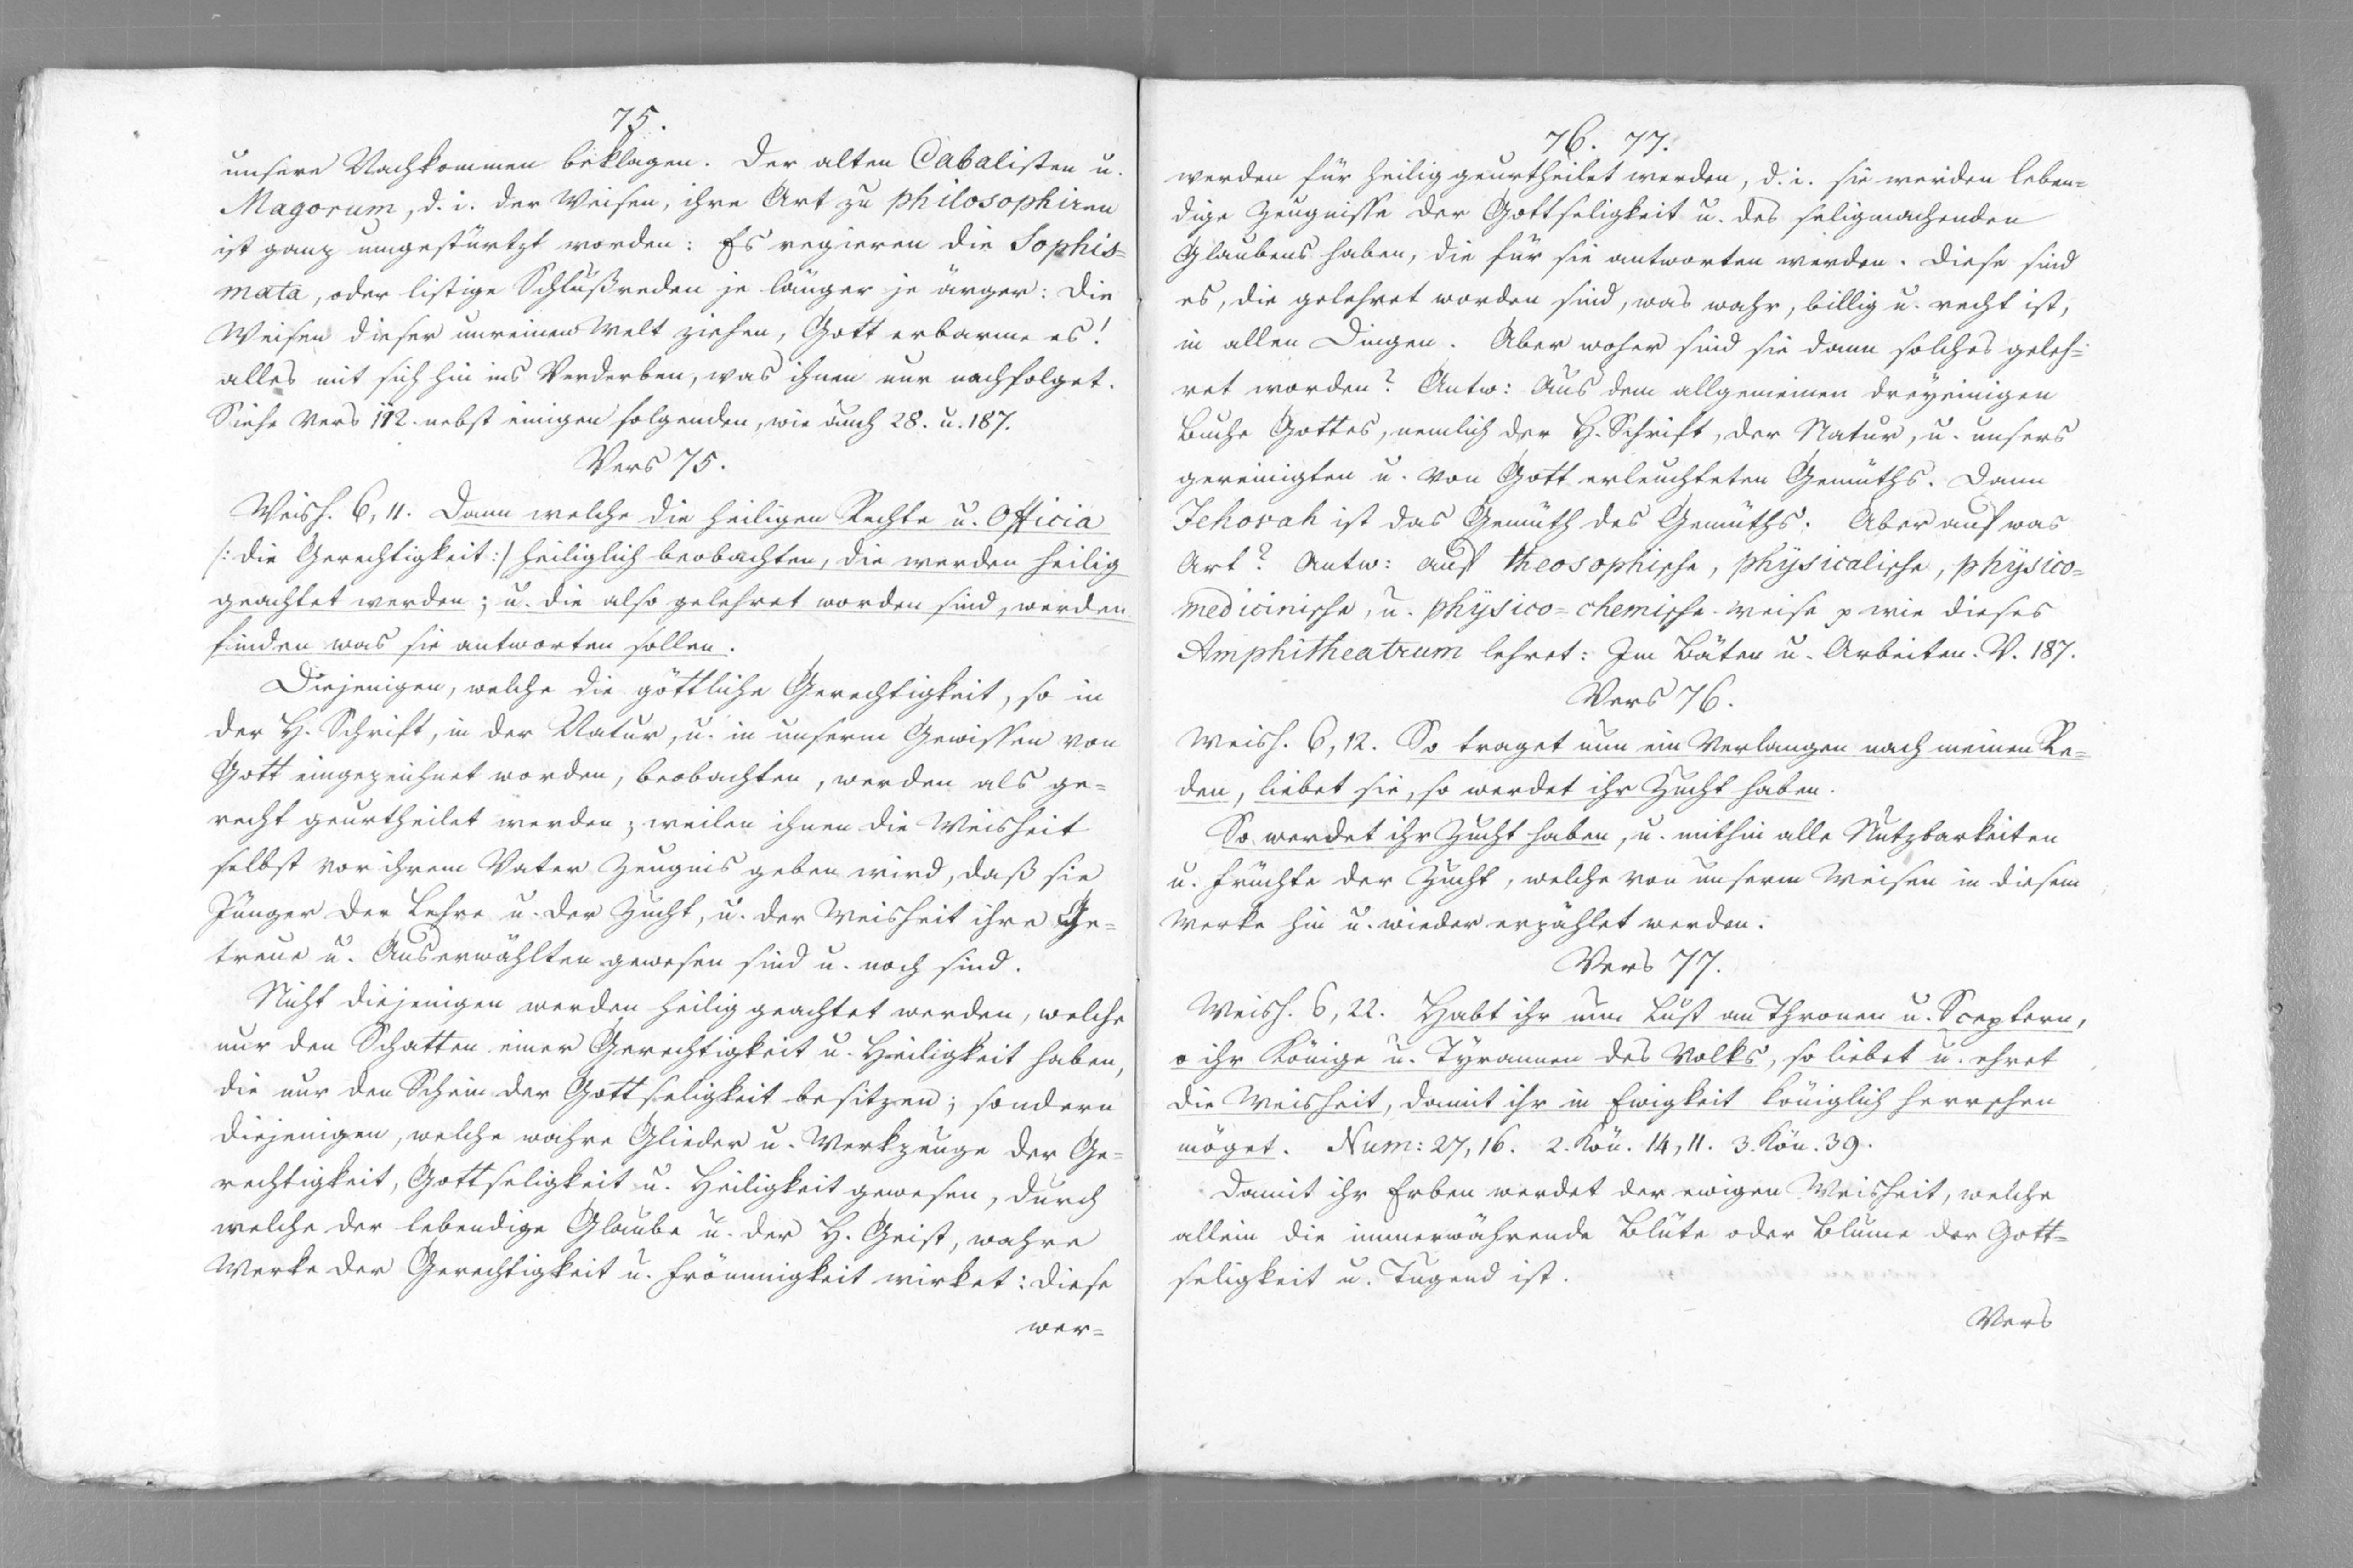 75.
unsere Nachkommen beklagen. Der alten Cabalisten u.
Magorum, d. i. der Weisen, ihre Art zu philosophiren
ist ganz umgestürtzt worden: Es regieren die Sophis=
mata, oder listige Schlußreden je länger je ärger: Die
Weisen dieser unreinen Welt ziehen, Gott erbarme es!
alles mit sich hin ins Verderben, was ihnen nur nachfolget.
Siehe Vers 112. nebst einigen folgenden, wie auch 28. u. 187.
Vers 75.
Weish. 6, 11. Dann welche die heiligen Rechte u. Officia
/: die Gerechtigkeit :/ heiliglich beobachten, die werden heilig
geachtet werden; u. die also gelehret worden sind, werden
finden was sie antworten sollen.
Diejenigen, welche die göttliche Gerechtigkeit, so in
der H. Schrift, in der Natur, u. in unserm Gewissen von
Gott eingezeichnet worden, beobachten, werden als ge=
recht geurtheilet werden; weilen ihnen die Weisheit
selbst vor ihrem Vater Zeugnis geben wird, daß sie
Jünger der Lehre u. der Zucht, u. der Weisheit ihre Ge=
treue u. Auserwählten gewesen sind u. noch sind.
Nicht diejenigen werden heilig geachtet werden, welche
nur den Schatten einer Gerechtigkeit u. Heiligkeit haben,
die nur den Schein der Gottseligkeit besitzen; sondern
diejenigen, welche wahre Glieder u. Werkzeuge der Ge=
rechtigkeit, Gottseligkeit u. Heiligkeit gewesen, durch
welche der lebendige Glaube u. der H. Geist, wahre
Werke der Gerechtigkeit u. Frömmigkeit wirket: diese
wer=
76. 77.
werden für heilig geurtheilet werden, d. i. sie werden leben=
dige Zeugnisse der Gottseligkeit u. des seligmachenden
Glaubens haben, die für sie antworten werden. Diese sind
es, die gelehret worden sind, was wahr, billig u. recht ist,
in allen Dingen. Aber woher sind sie dann solches geleh=
ret worden? Antw: Aus dem allgemeinen dreyeinigen
Buche Gottes, nemlich der H. Schrift, der Natur, u. unsers
gereinigten u. von Gott erleuchteten Gemüths. Dann
Jehovah ist das Gemüth des Gemüths. Aber auf was
Art? Antw: auf theosophische, physicalische, physico=
medicinische, u. physico=chemische Weise p wie dieses
Amphitheatrum lehret: Im Bäten u. Arbeiten. V. 187.
Vers 76.
Weish. 6, 12. So traget nun ein Verlangen nach meinen Re=
den, liebet sie, so werdet ihr Zucht haben.
So werdet ihr Zucht haben, u. mithin alle Nutzbarkeiten
u. Früchte der Zucht, welche von unserm Weisen in diesem
Werke hin u. wieder erzählet werden.
Vers 77.
Weish. 6, 22. Habt ihr nun Lust an Thronen u. Sceptern,
o ihr Könige u. Tyrannen des Volks, so liebet u. ehret
die Weisheit, damit ihr in Ewigkeit königlich herrschen
möget. Num: 27, 16. 2. Kön. 14, 11. 3. Kön. 39.
Damit ihr Erben werdet der ewigen Weisheit, welche
allein die immerwährende Blüte oder Blume der Gott=
seligkeit u. Tugend ist.
Vers